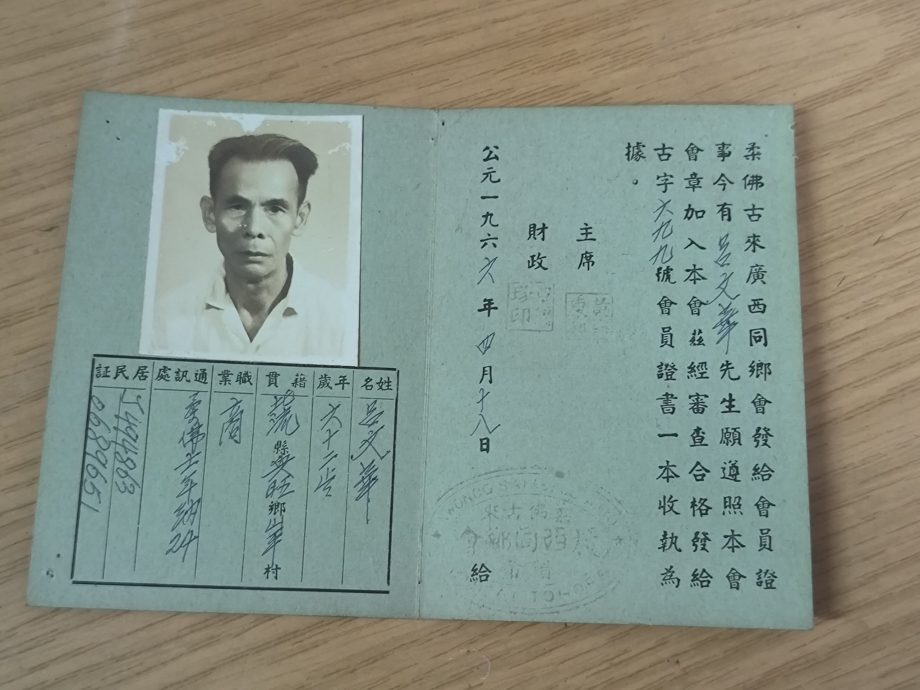 柔佛古來廣西同鄉會發給會員證
事今有呂文華先生願遵照本會
會章加入本會茲經審查合格發給
古字六九九號會員證書一本收執為
據。
主席
財政
公元一九六六年四月十八日給
姓名 呂文華
年歲 六十二歲
籍貫 縣 旺鄉 村
職業 商
通訊處 士年納24
居民証 0689651